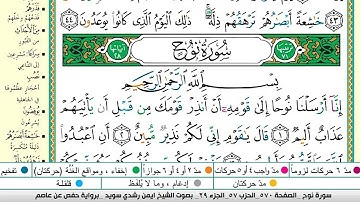 خَـٰشِعَةً أَبْصَـٰرُهُمْ تَرْهَقُهُمْ ذِلَّةٌ ۚ ذَٰلِكَ ٱلْيَوْمُ ٱلَّذِى كَانُوا۟ يُوعَدُونَ ٤٤
سُورَةُ نُوحٍ
بِسْمِ ٱللَّهِ ٱلرَّحْمَـٰنِ ٱلرَّحِيمِ
إِنَّآ أَرْسَلْنَا نُوحًا إِلَىٰ قَوْمِهِۦٓ أَنْ أَنذِرْ قَوْمَكَ مِن قَبْلِ أَن يَأْتِيَهُمْ
عَذَابٌ أَلِيمٌ ١ قَالَ يَـٰقَوْمِ إِنِّى لَكُمْ نَذِيرٌ مُّبِينٌ ٢ أَنِ ٱعْبُدُوا۟
مدّ ٦ حركات لزوماً مدّ واجب ٤ أو ٥ حركات مدّ ٢ أو ٤ أو ٦ جوازاً إخفاء، ومواقع الغنّة (حركتان) تفخيم
مدّ حركتان إدغام، وما لا يُلفظ قلقلة
سورة نوح - الصفحة ٥٧٠ - الحزب ٥٧ - الجزء ٢٩ - بصوت الشيخ ايمن رشدي سويد - برواية حفص عن عاصم